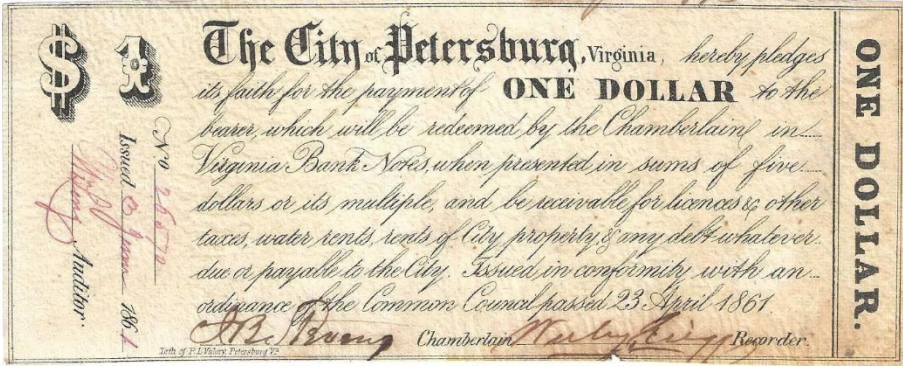 $ 1
The City of Petersburg, Virginia, hereby pledges
its faith for the payment of ONE DOLLAR to the
bearer, which will be redeemed by the Chamberlain in
Virginia Bank Notes, when presented in sums of five
dollars or its multiple, and be receivable for licences & other
taxes, water rents, rents of City property, & any debt whatever
due or payable to the City. Issued in conformity with an
ordinance of the Common Council passed 23 April 1861
Chamberlain Recorder.
Lith of P. L. Valory, Petersburg Va
No
Issued 3 June 1861
Auditor.
ONE DOLLAR.